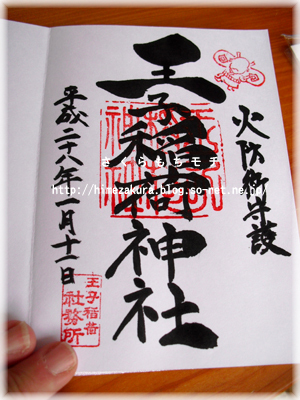 火防御守護
王子稲荷神社
平成二十八年一月十一日
王子稲荷
社務所
さくらもちモチ
http://himezakura.blog.so-net.ne.jp/